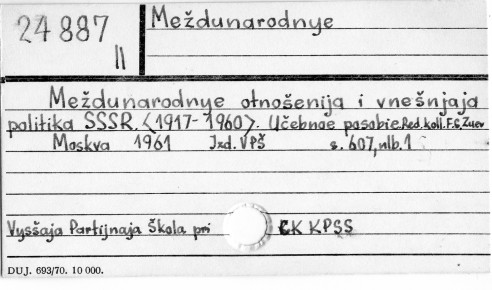 24 887
II
Meždunarodnye
Meždunarodnye otnošenija i vnešnjaja
politika SSSR. <1917-1960>. Učebnoe posobie. Red. koll. F.G. Zuev
Moskva 1961 Izd. VPŠ s. 607, nlb. 1
Vysšaja Partijnaja Škola pri CK KPSS
DUJ. 693/70. 10 000.